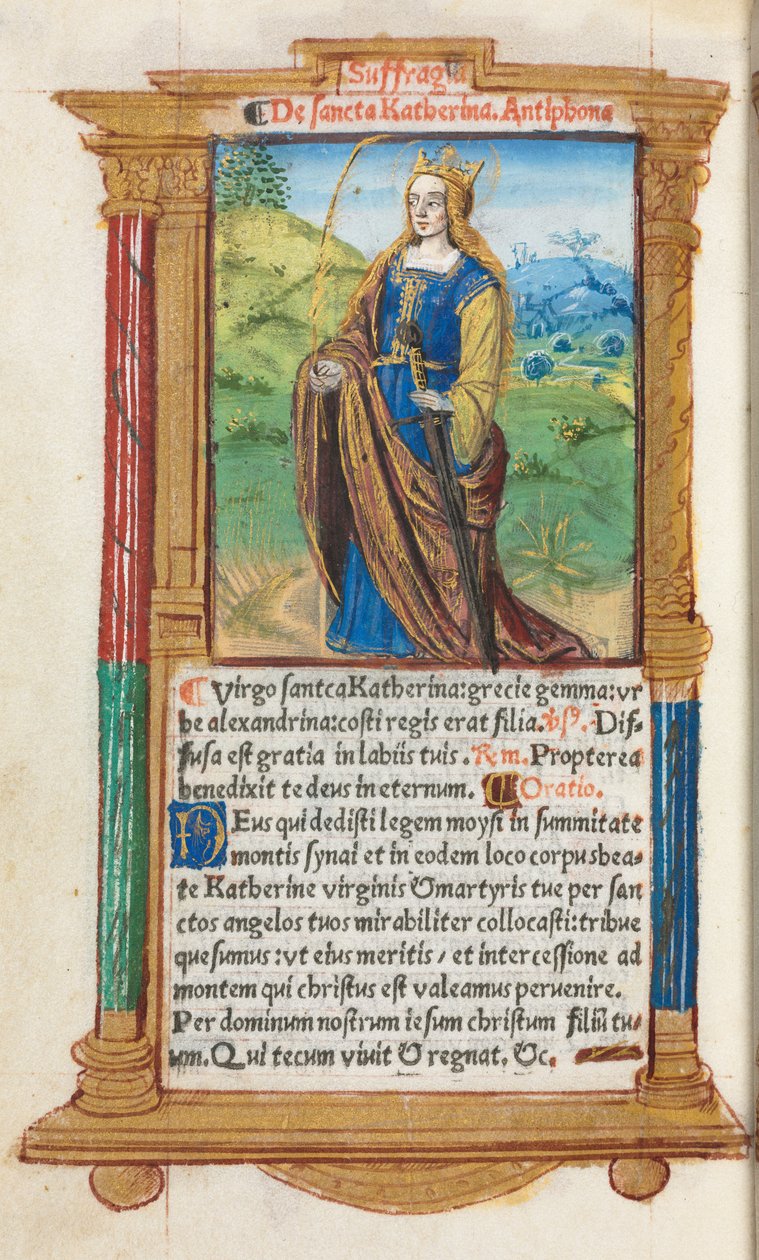 Suffragia
¶ De sancta Katherina. Antiphona
¶ Virgo santca Katherina: grecie gemma: vr
be alexandrina: costi regis erat filia. v̾s. Dif-
fusa est gratia in labiis tuis. R̃ m. Propterea
benedixit te deus in eternum. ¶ Oratio.
DEus qui dedisti legem moysi in summitate
montis synai et in eodem loco corpus bea-
te Katherine virginis & martyris tue per san
ctos angelos tuos mirabiliter collocasti: tribue
quesumus: vt eius meritis / et intercessione ad
montem qui christus est valeamus peruenire.
Per dominum nostrum iesum christum filiū tu-
um. Qui tecum viuit & regnat. &c.